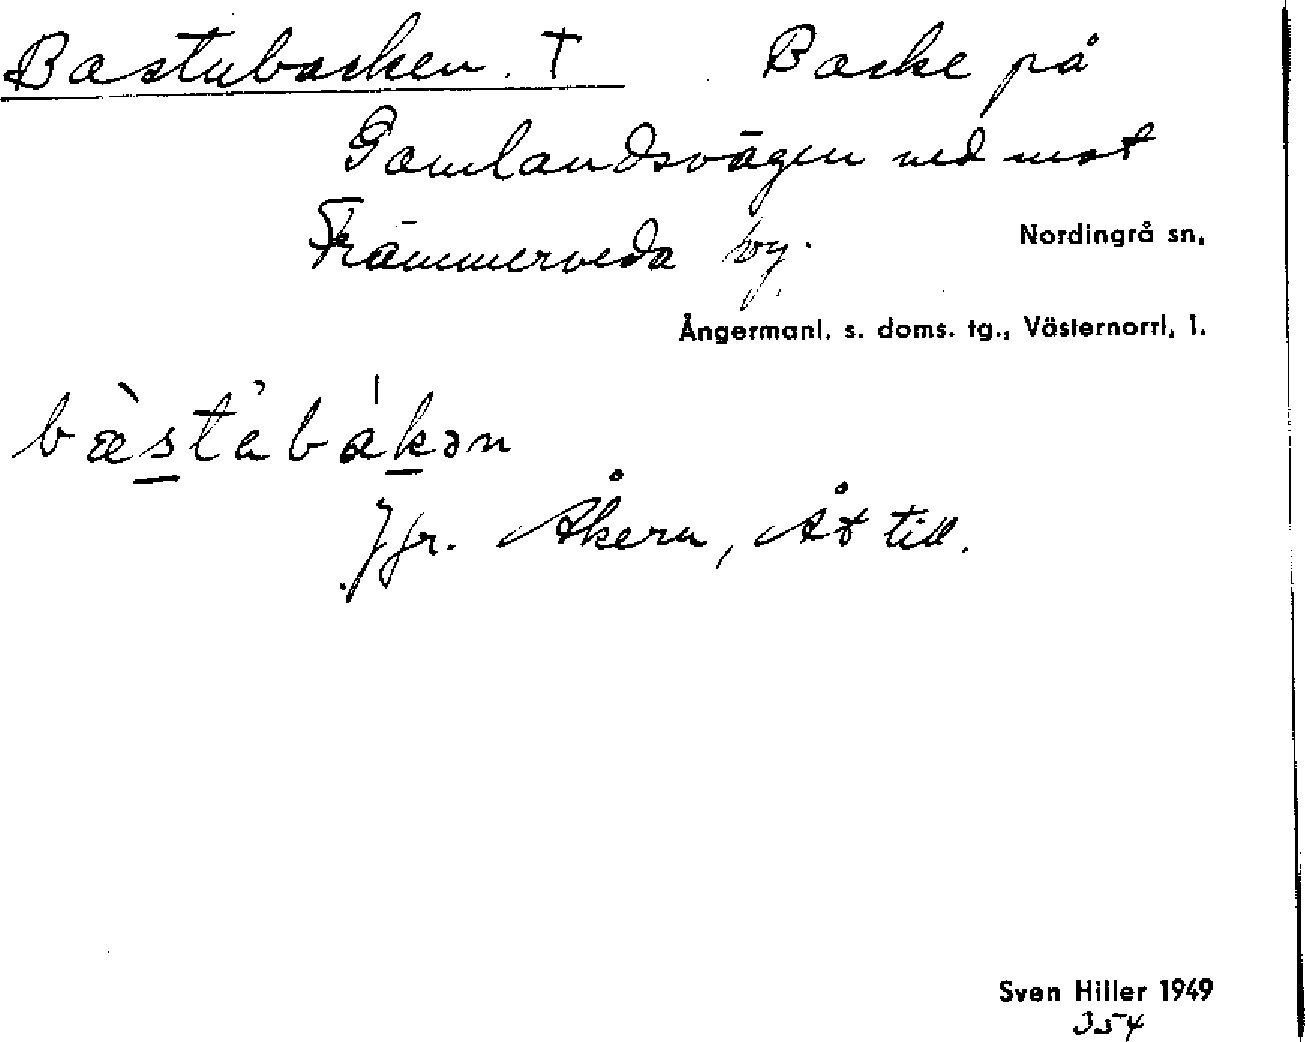 Bastubacken. T Backe på
Gamlandsvägen ned mot
Främmerveda by.
Nordingrå sn,
Ångermanl. s. doms. tg., Västernorrl. l.
bæ̀stábákən
Jfr. Åkern, Åt till.
Sven Hiller 1949
354